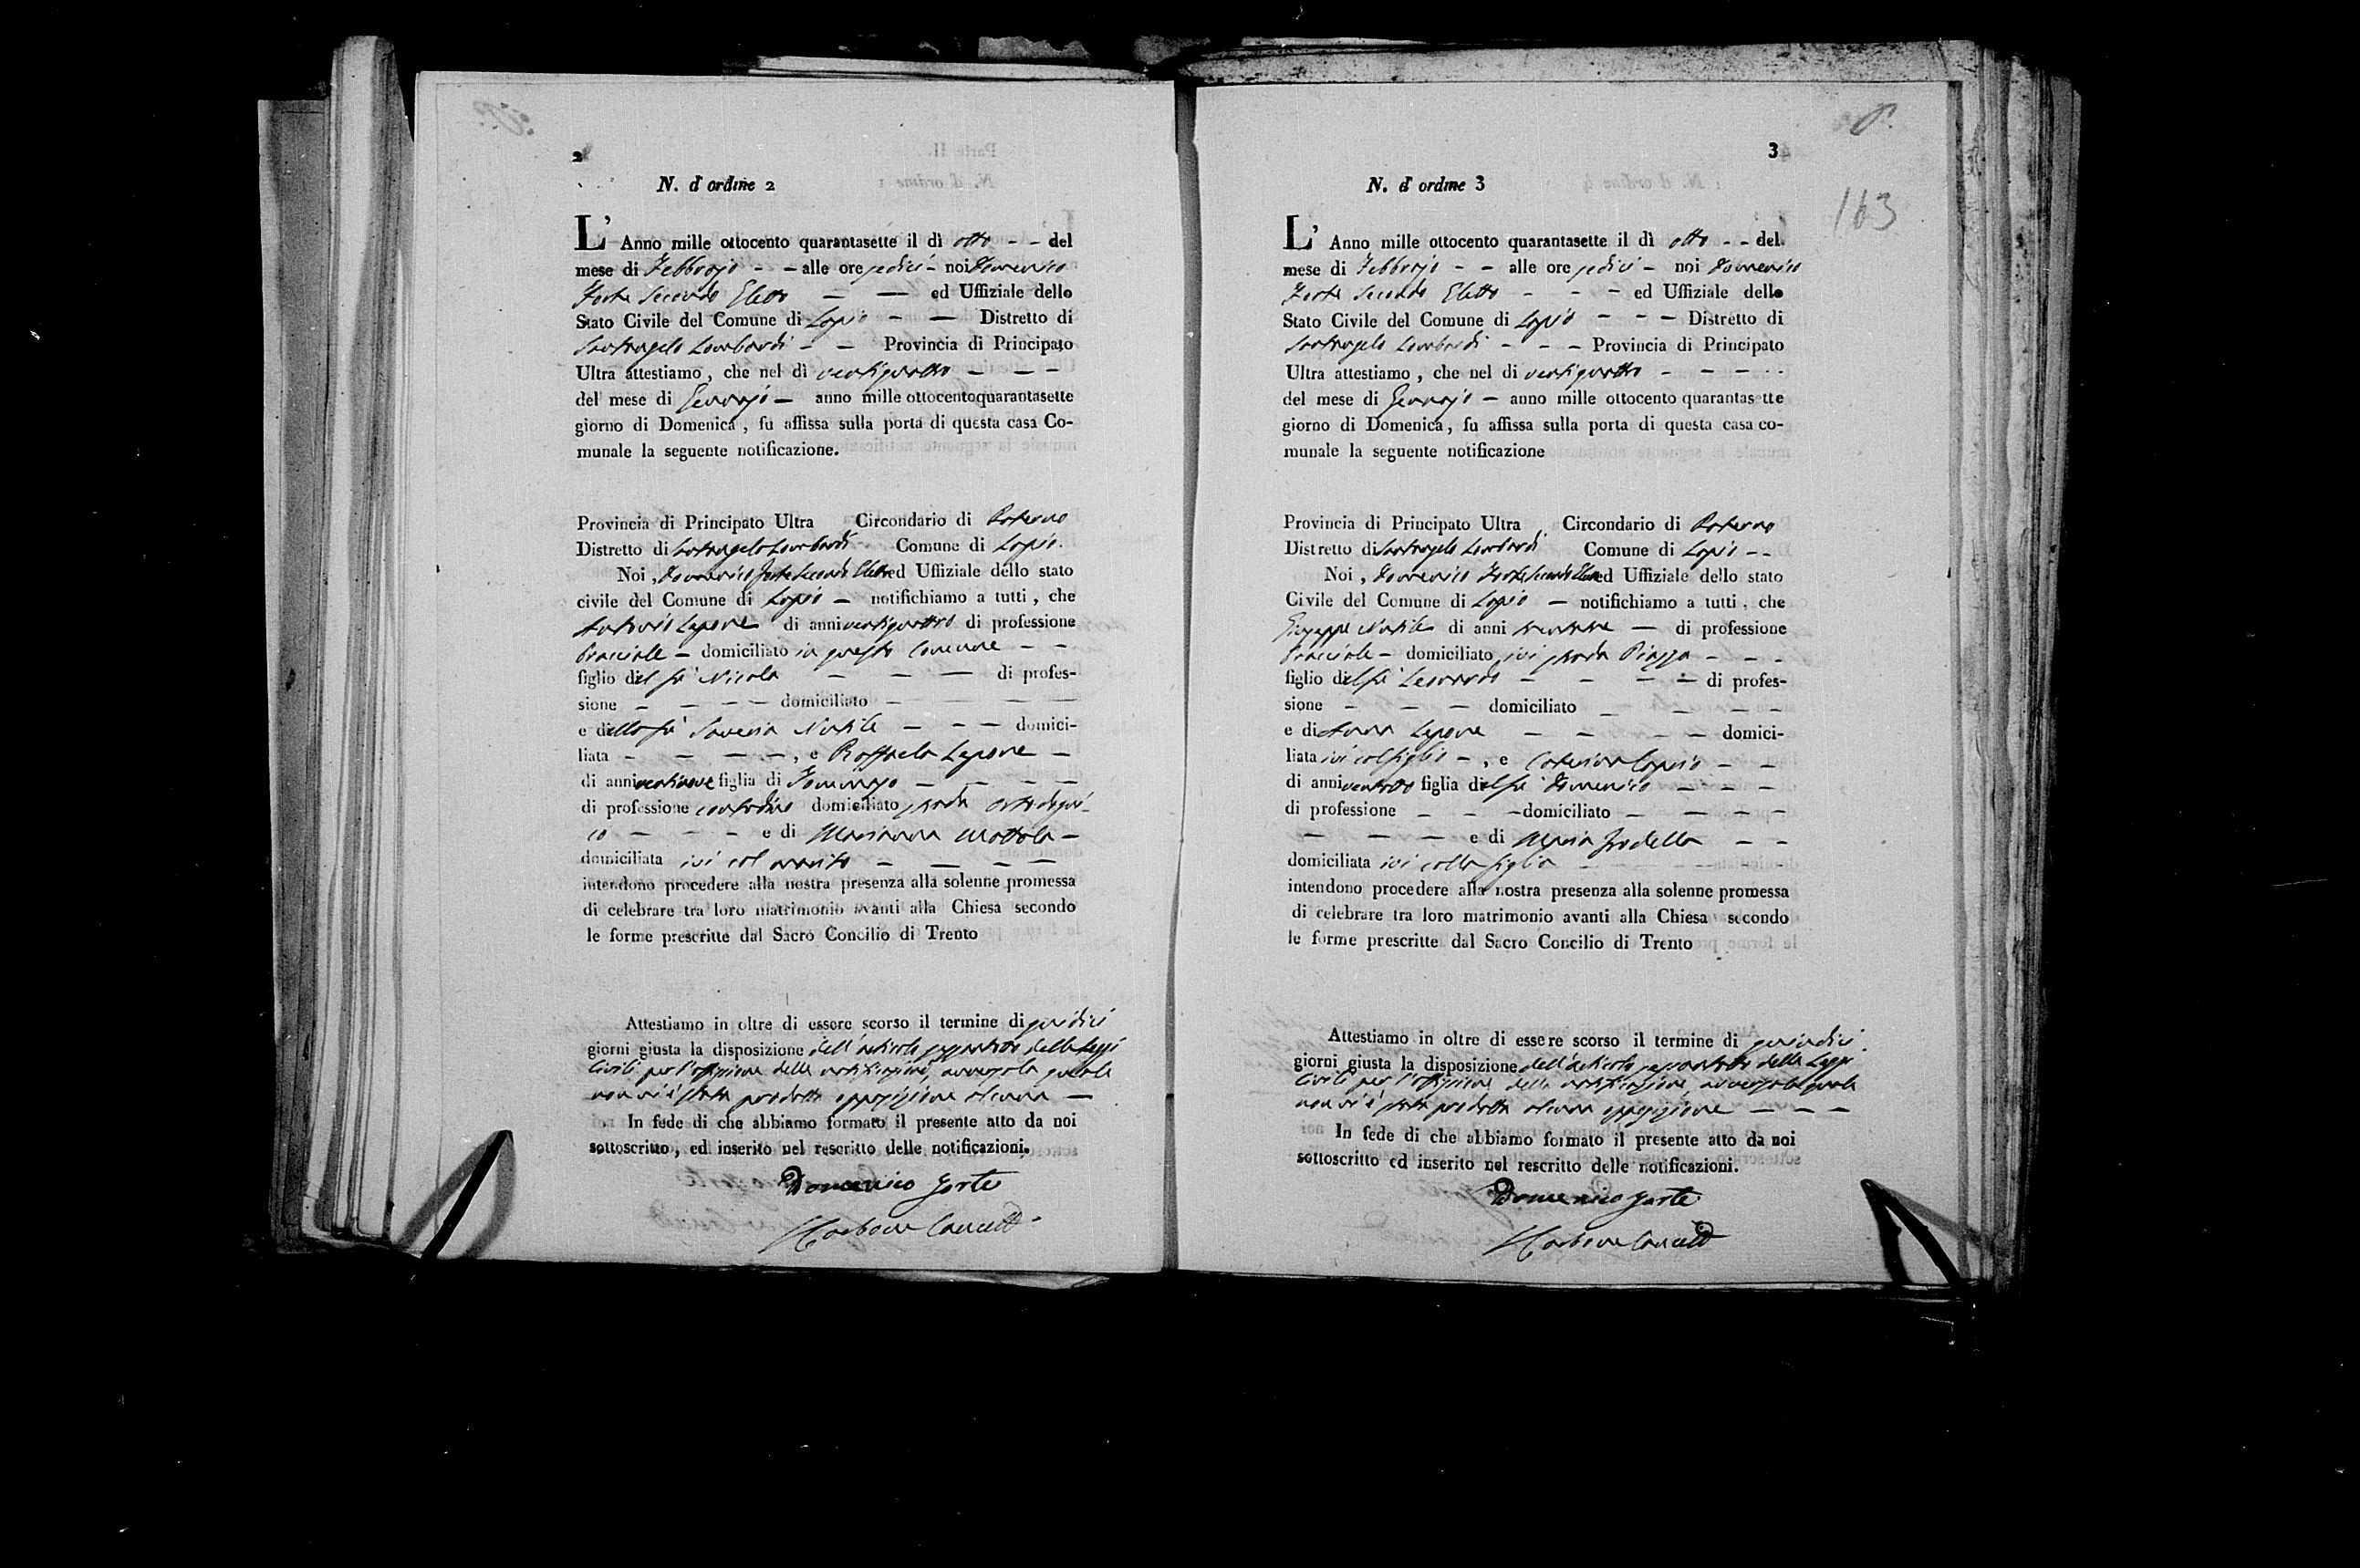 2
N. d'ordine 2
L' Anno mille ottocento quarantasette il dì otto - - del
mese di Febbrajo - - alle ore sedici - noi Domenico
Forte Secondo Eletto - - ed Uffiziale dello
Stato Civile del Comune di Lapio - - Distretto di
Santangelo Lombardi - - Provincia di Principato
Ultra attestiamo, che nel dì ventiquattro - - -
del mese di Gennajo - anno mille ottocentoquarantasette
giorno di Domenica, fu affissa sulla porta di questa casa Co-
munale la seguente notificazione.
Provincia di Principato Ultra Circondario di Paterno
Distretto di Santangelo Lombardi Comune di Lapio.
Noi, Domenico Forte Secondo Eletto ed Uffiziale dello stato
civile del Comune di Lapio - notifichiamo a tutti, che
Antonio Lepore di anni ventiquattro di professione
bracciale - domiciliato in questo Comune - -
figlio del fu Nicola - - - di profes-
sione - - - - domiciliato - - -
e della fu Saveria Nutile - - - domici-
liata - - - -, e Raffaela Lepore -
di anni ventinove figlia di Gennaro - - - -
di professione contadino domiciliato strada
- - - e di Marianna Mottola -
domiciliata ivi col marito - - - -
intendono procedere alla nostra presenza alla solenne promessa
di celebrare tra loro matrimonio avanti alla Chiesa secondo
le forme prescritte dal Sacro Concilio di Trento
Attestiamo in oltre di essere scorso il termine di quindici
giorni giusta la disposizione dell'articolo sessantotto delle Leggi
Civili per l'affissione delle notificazioni, avverso la quale
non vi è stata prodotta opposizione alcuna -
In fede di che abbiamo formato il presente atto da noi
sottoscritto, ed inserito nel rescritto delle notificazioni.
Domenico Forte
3
163
N. d'ordine 3
L' Anno mille ottocento quarantasette il dì otto - - del
mese di Febbrajo - - alle ore sedici - noi Domenico
Forte Secondo Eletto - - - ed Uffiziale dello
Stato Civile del Comune di Lapio - - - Distretto di
Santangelo Lombardi - - - Provincia di Principato
Ultra attestiamo, che nel di ventiquattro - - - - -
del mese di Gennajo - anno mille ottocento quarantasette
giorno di Domenica, fu affissa sulla porta di questa casa co-
munale la seguente notificazione
Provincia di Principato Ultra Circondario di Paterno
Distretto di Santangelo Lombardi Comune di Lapio - -
Noi, Domenico Forte Secondo Eletto ed Uffiziale dello stato
Civile del Comune di Lapio - notifichiamo a tutti, che
Giuseppe Nutile di anni - di professione
bracciale - domiciliato ivi strada Piazza - - -
figlio del fu Leonardo - - - - di profes-
sione - - - domiciliato - - - -
e di Anna Lepore - - - - domici-
liata ivi col figlio -, e Caterina Caprio - -
di anni ventotto figlia del fu Domenico - - -
di professione - - - domiciliato - - - -
- - - e di Maria - -
domiciliata ivi colla figlia
intendono procedere alla nostra presenza alla solenne promessa
di celebrare tra loro matrimonio avanti alla Chiesa secondo
le forme prescritte dal Sacro Concilio di Trento
Attestiamo in oltre di essere scorso il termine di quindici
giorni giusta la disposizione dell'articolo sessantotto delle Leggi
Civili per l'affissione della notificazione avverso la quale
non vi è stata prodotta alcuna opposizione - - -
In fede di che abbiamo formato il presente atto da noi
sottoscritto ed inserito nel rescritto delle notificazioni.
Domenico Forte